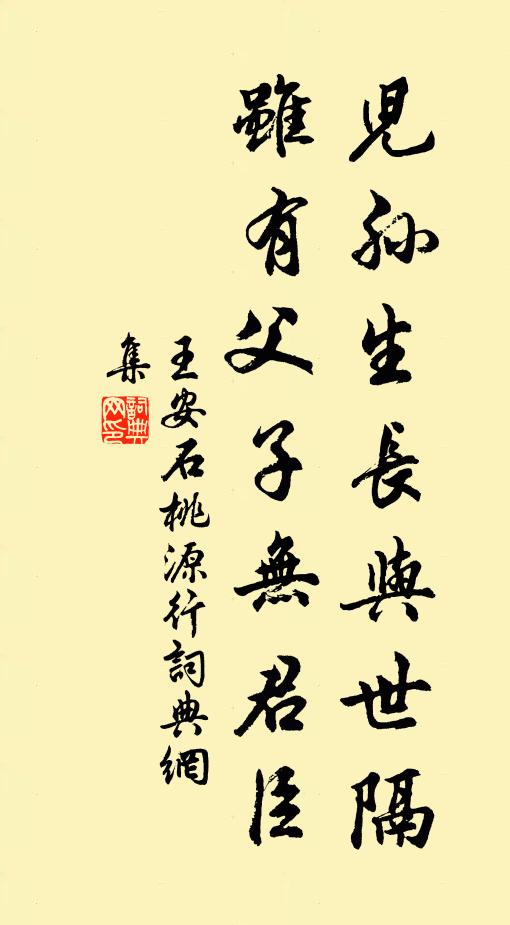 兒孫生長與世隔
雖有父子無君臣
王安石桃源行詞典網
集
詞典
网印